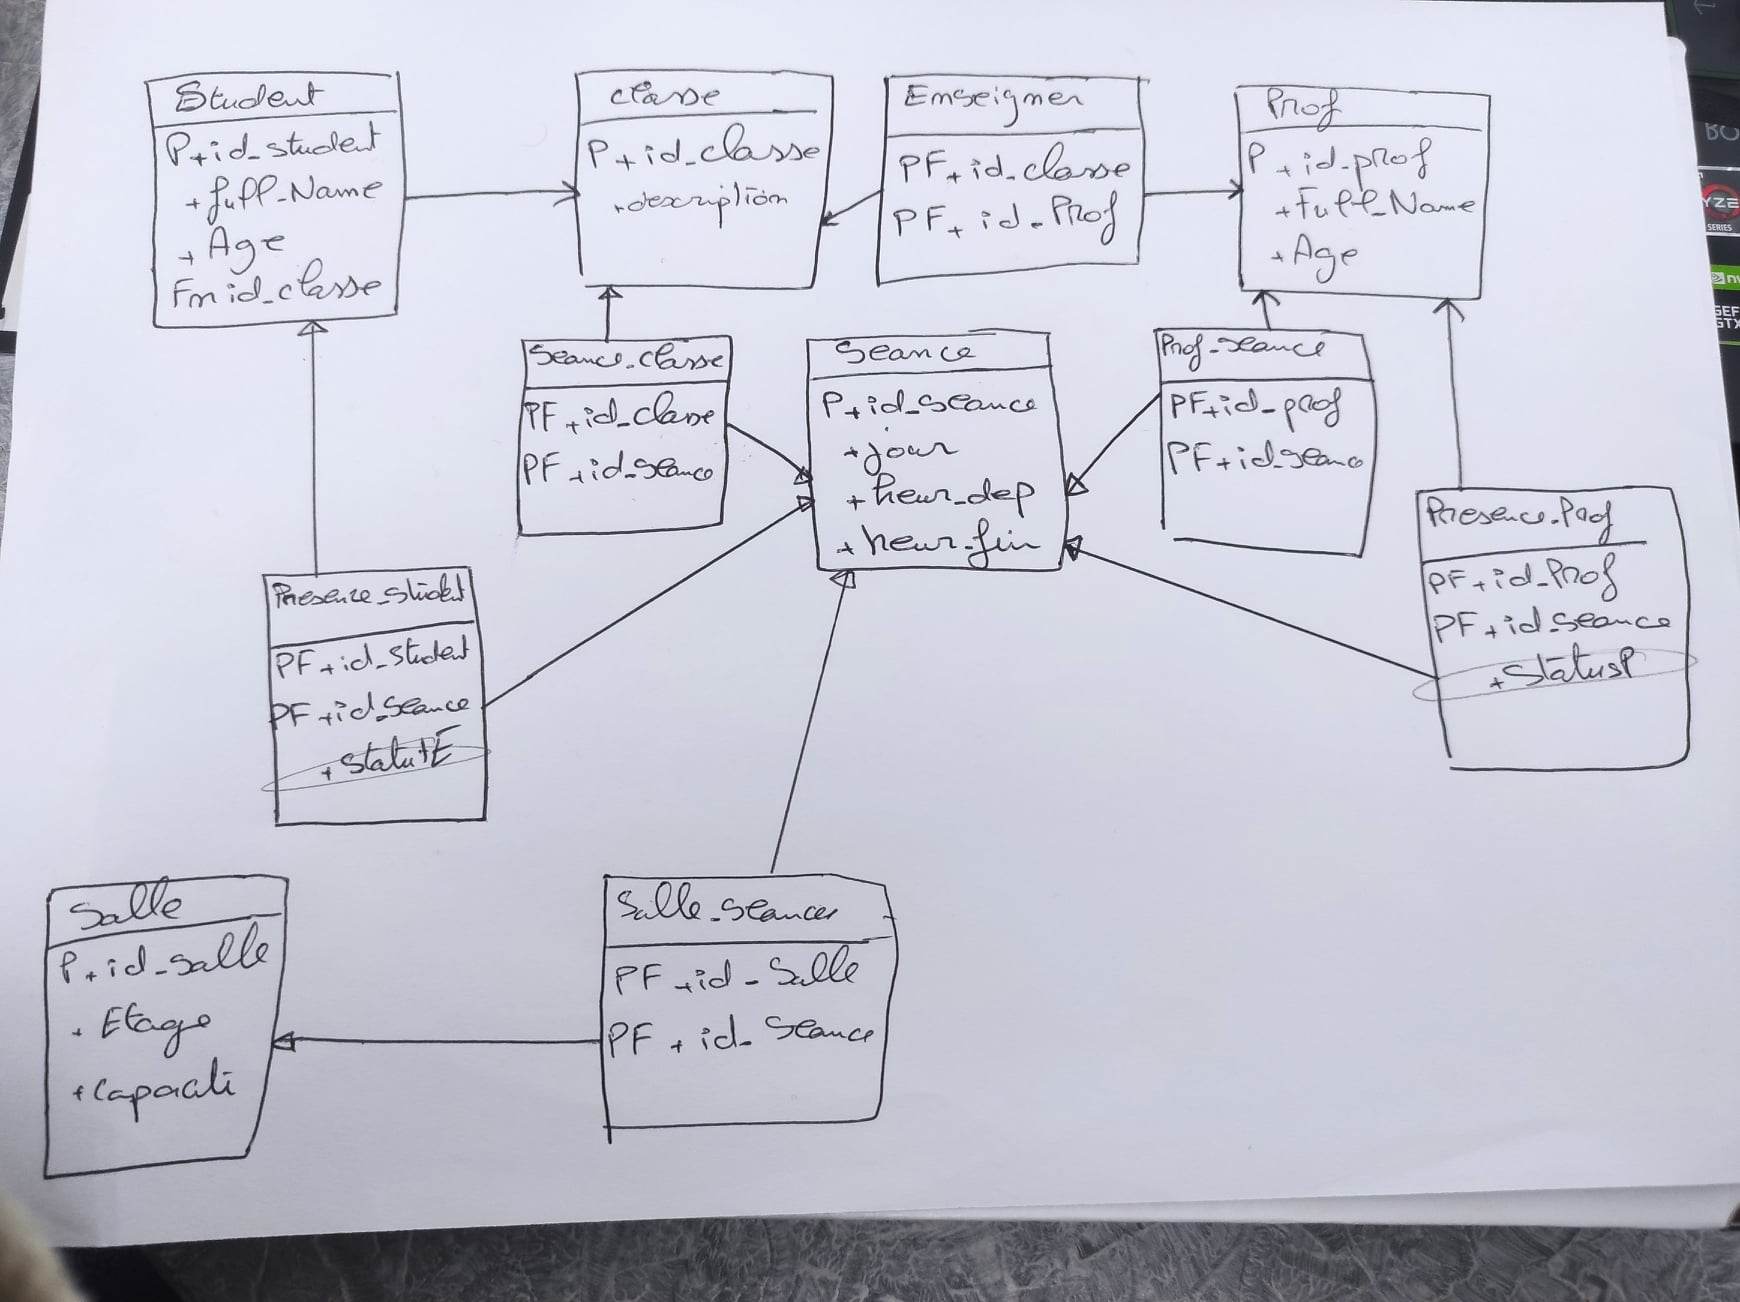 Student
P+id_student
+full_Name
+Age
Fm id_classe
classe
P+id_classe
+description
Emseigner
PF+id_classe
PF+id_Prof
Prof
P+id_prof
+Full_Name
+Age
Seance_classe
PF+id_classe
PF+id_seance
Seance
P+id_seance
+jour
+heur_dep
+heur_fin
Prof_seance
PF+id_prof
PF+id_seance
Presence_Prof
PF+id_Prof
PF+id_seance
+StatusP
Presence_student
PF+id_student
PF+id_seance
+StatutE
Salle
P+id_salle
+Etage
+Capaciti
Salle_seances
PF+id_Salle
PF+id_Seance
YZE
SERIES
GTX